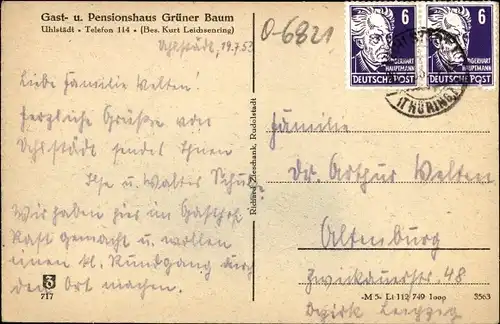 Gast- u. Pensionshaus Grüner Baum
Uhlstädt • Telefon 114 • (Bes. Kurt Leichsenring)
Uhlstädt, 19.7.53
O-6821
6
GERHART
HAUPTMANN
DEUTSCHE POST
6
GERHART
HAUPTMANN
DEUTSCHE POST
Liebe Familie Welten!
Herzliche Grüße von
Uhlstädt sendet Ihnen
Ilse u. Walter
Wir haben hier im Gasthof
Rast gemacht u. wollen
einen kl. Rundgang durch
den Ort machen.
Familie
Dr. Arthur Welten
Altenburg
Zwickauerstr. 48
Bezirk Leipzig
Richard Zieschank, Rudolstadt
3
717
-M 5- Lt 112 749 1000
3563